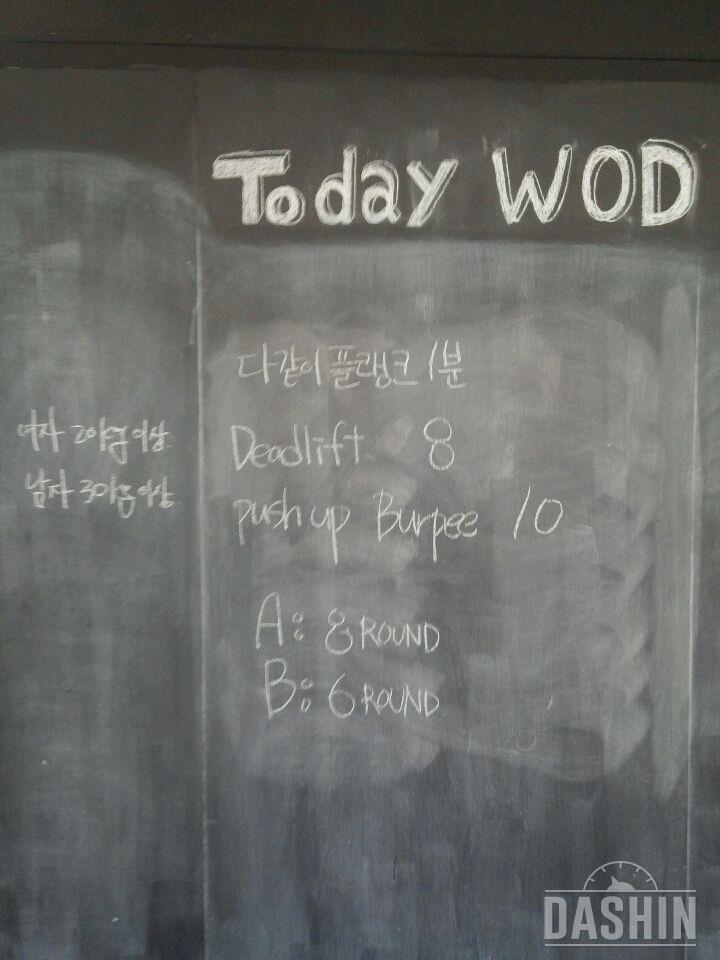 Today WOD
다같이 플랭크 1분
여자 20이상
남자 30이상
Deadlift 8
push up Burpee 10
A: 8 ROUND
B: 6 ROUND
DASHIN